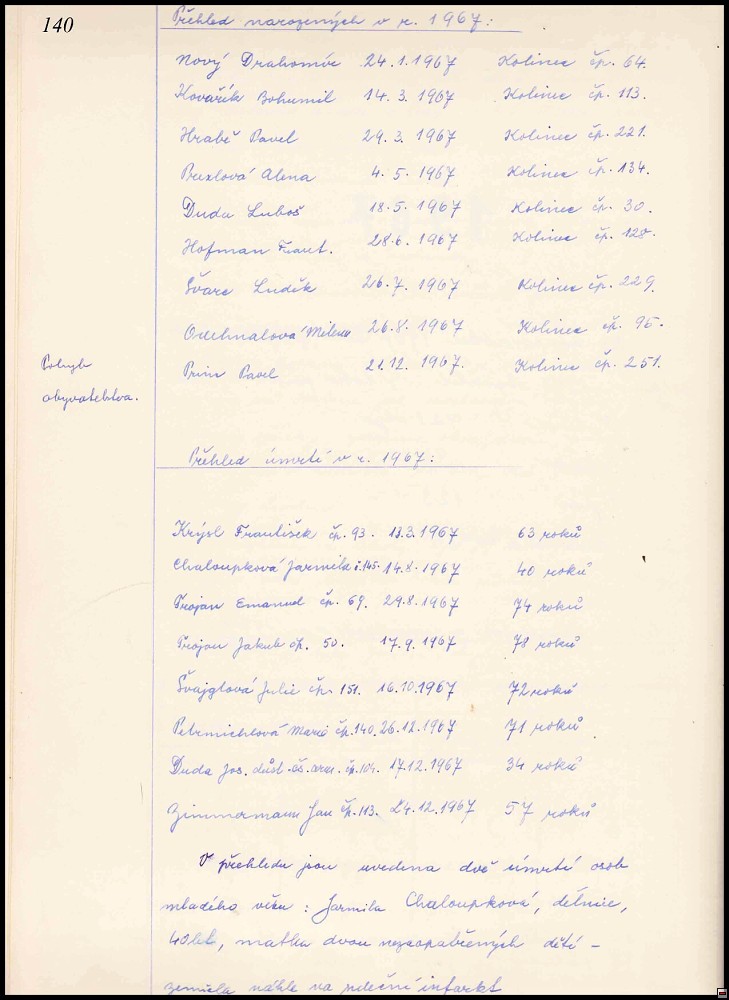 140
Přehled narozených v r. 1967:
Nový Drahomír 24.1.1967 Kolinec čp. 64.
Kovařík Bohumil 14.3.1967 Kolinec čp. 113.
Hrabě Pavel 29.3.1967 Kolinec čp. 221.
Brexlová Alena 4.5.1967 Kolinec čp. 134.
Duda Luboš 18.5.1967 Kolinec čp. 30.
Hofman Frant. 28.6.1967 Kolinec čp. 128.
Švarc Luděk 26.7.1967 Kolinec čp. 229.
Odehnalová Milena 26.8.1967 Kolinec čp. 95.
Prim Pavel 21.12.1967. Kolinec čp. 251.
Pohyb
obyvatelstva.
Přehled úmrtí v r. 1967:
Krýsl František čp. 93. 13.3.1967 63 roků
Chaloupková Jarmila č.145. 14.8.1967 40 roků
Trojan Emanuel čp. 69. 29.8.1967 74 roků
Trojan Jakub čp. 50. 17.9.1967 78 roků
Švajglová Julie čp. 151. 16.10.1967 72 roků
Petrmichlová Marie čp.140. 26.12.1967 71 roků
Duda Jos. důst. čs. arm. čp.104. 17.12.1967 34 roků
Zimmermann Jan čp.113. 24.12.1967 57 roků
V přehledu jsou uvedena dvě úmrtí osob
mladého věku: Jarmila Chaloupková, dělnice,
40 let, matka dvou nezaopatřených dětí -
zemřela náhle na srdeční infarkt